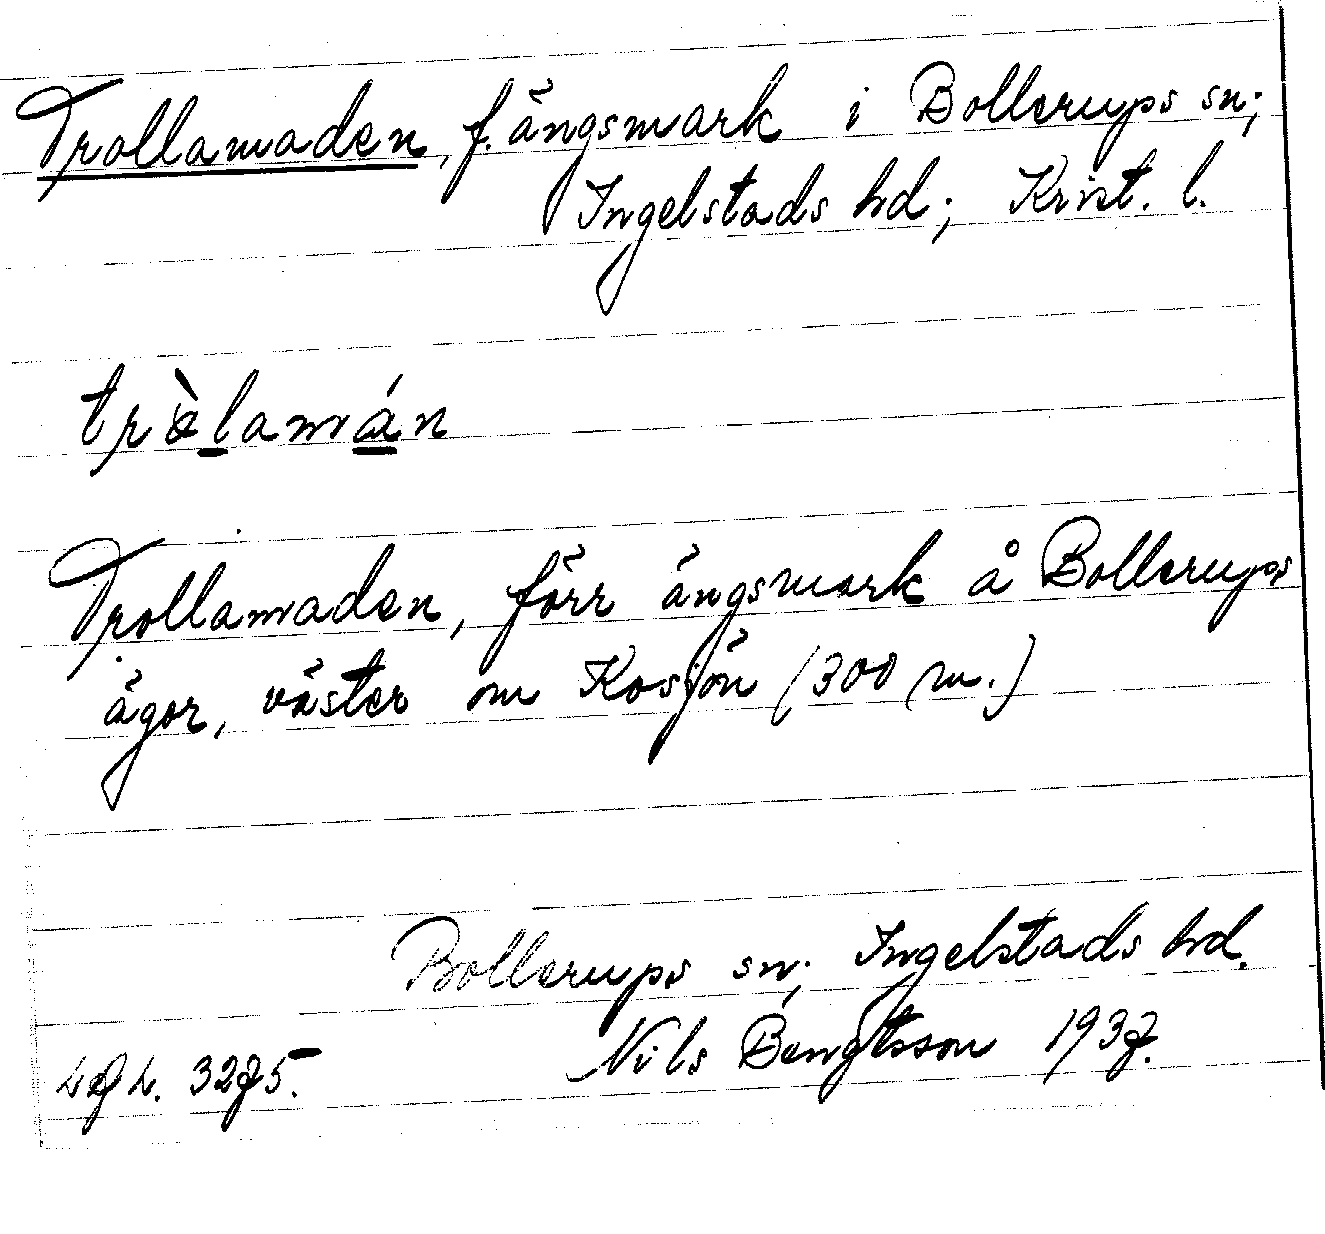 Trollamaden, f. ängsmark i Bollerups sn;
Ingelstads hd; Krist. l.
trèlamán
Trollamaden, förr ängsmark å Bollerups
ägor, väster om Kosjön (300 m.)
Bollerups sn; Ingelstads hd.
Nils Bengtsson 1937.
3275.